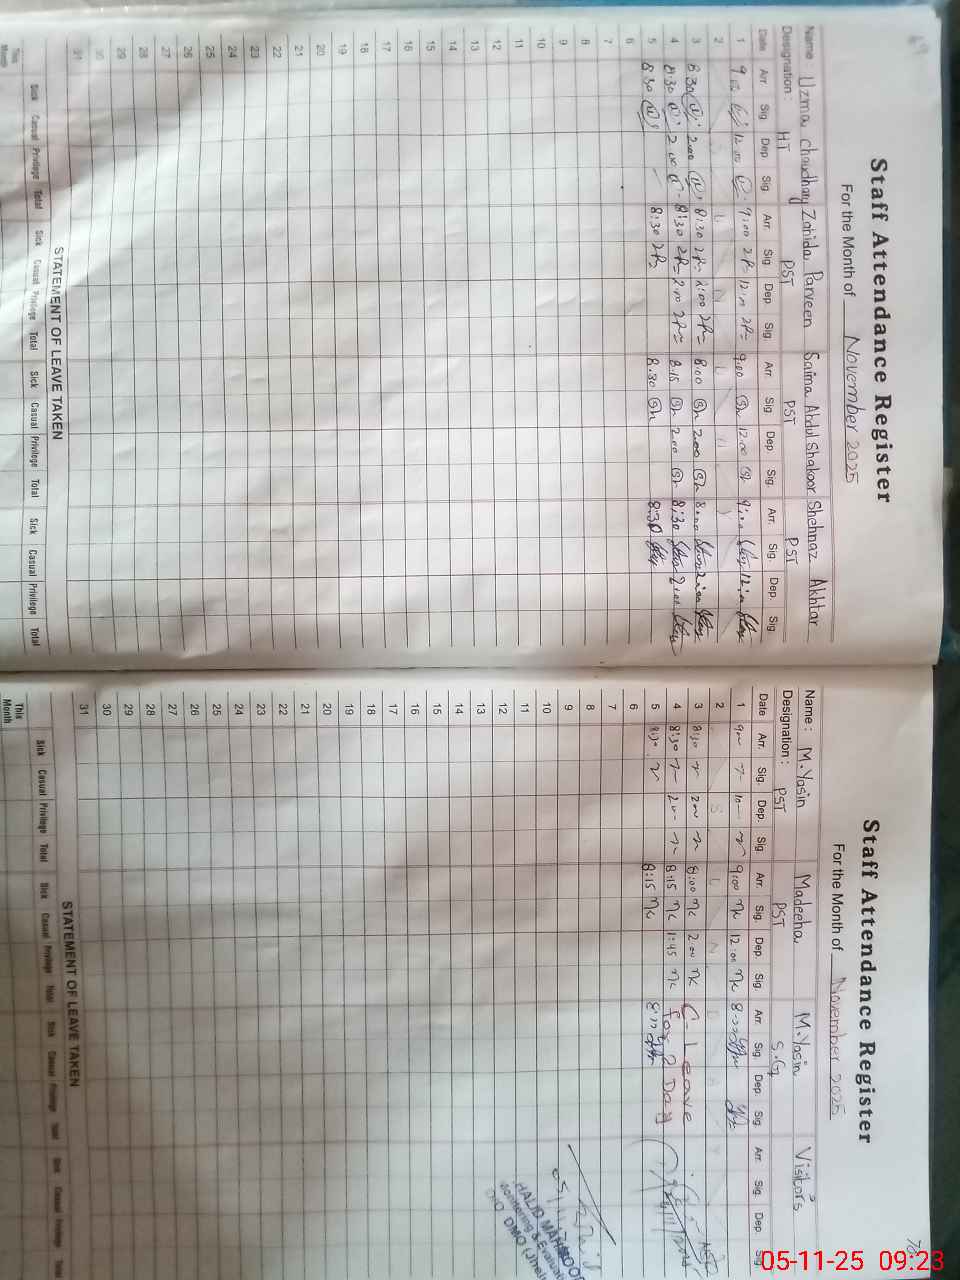 69
Staff Attendance Register
For the Month of November 2025
Name: Uzma Chaudhary Zahida Parveen Saima Abdul Shakoor Shehnaz Akhtar
Designation: HT PST PST PST
Date Arr. Sig. Dep. Sig. Arr. Sig. Dep. Sig. Arr. Sig. Dep. Sig. Arr. Sig. Dep. Sig.
1 9:00 12:00 9:00 12:00 9:00 12:00 9:00 12:00
2
3 8:30 2:00 8:30 2:00 8:00 2:00 8:00 2:00
4 8:30 2:00 8:30 2:00 8:15 2:00 8:30 2:00
5 8:30 8:30 8:30 8:30
6
7
8
9
10
11
12
13
14
15
16
17
18
19
20
21
22
23
24
25
26
27
28
29
30
31
STATEMENT OF LEAVE TAKEN
Sick Casual Privilege Total Sick Casual Privilege Total Sick Casual Privilege Total Sick Casual Privilege Total
This Month
70
Staff Attendance Register
For the Month of November 2025
Name: M.Yasin Madeeha M.Yasin Visitors
Designation: PST PST S.G
Date Arr. Sig. Dep. Sig. Arr. Sig. Dep. Sig. Arr. Sig. Dep. Sig. Arr. Sig. Dep. Sig.
1 9:00 9:00 12:00 8:00
2 S U N D A Y
3 8:30 2:00 8:00 2:00 C-Leave
4 8:30 2:00 8:15 1:45 for 2 Day
5 8:30 8:15 8:00
6
7
8
9
10
11
12
13
14
15
16
17
18
19
20
21
22
23
24
25
26
27
28
29
30
31
STATEMENT OF LEAVE TAKEN
Sick Casual Privilege Total Sick Casual Privilege Total Sick Casual Privilege Total Sick Casual Privilege Total
This Month
05-11-25 09:23